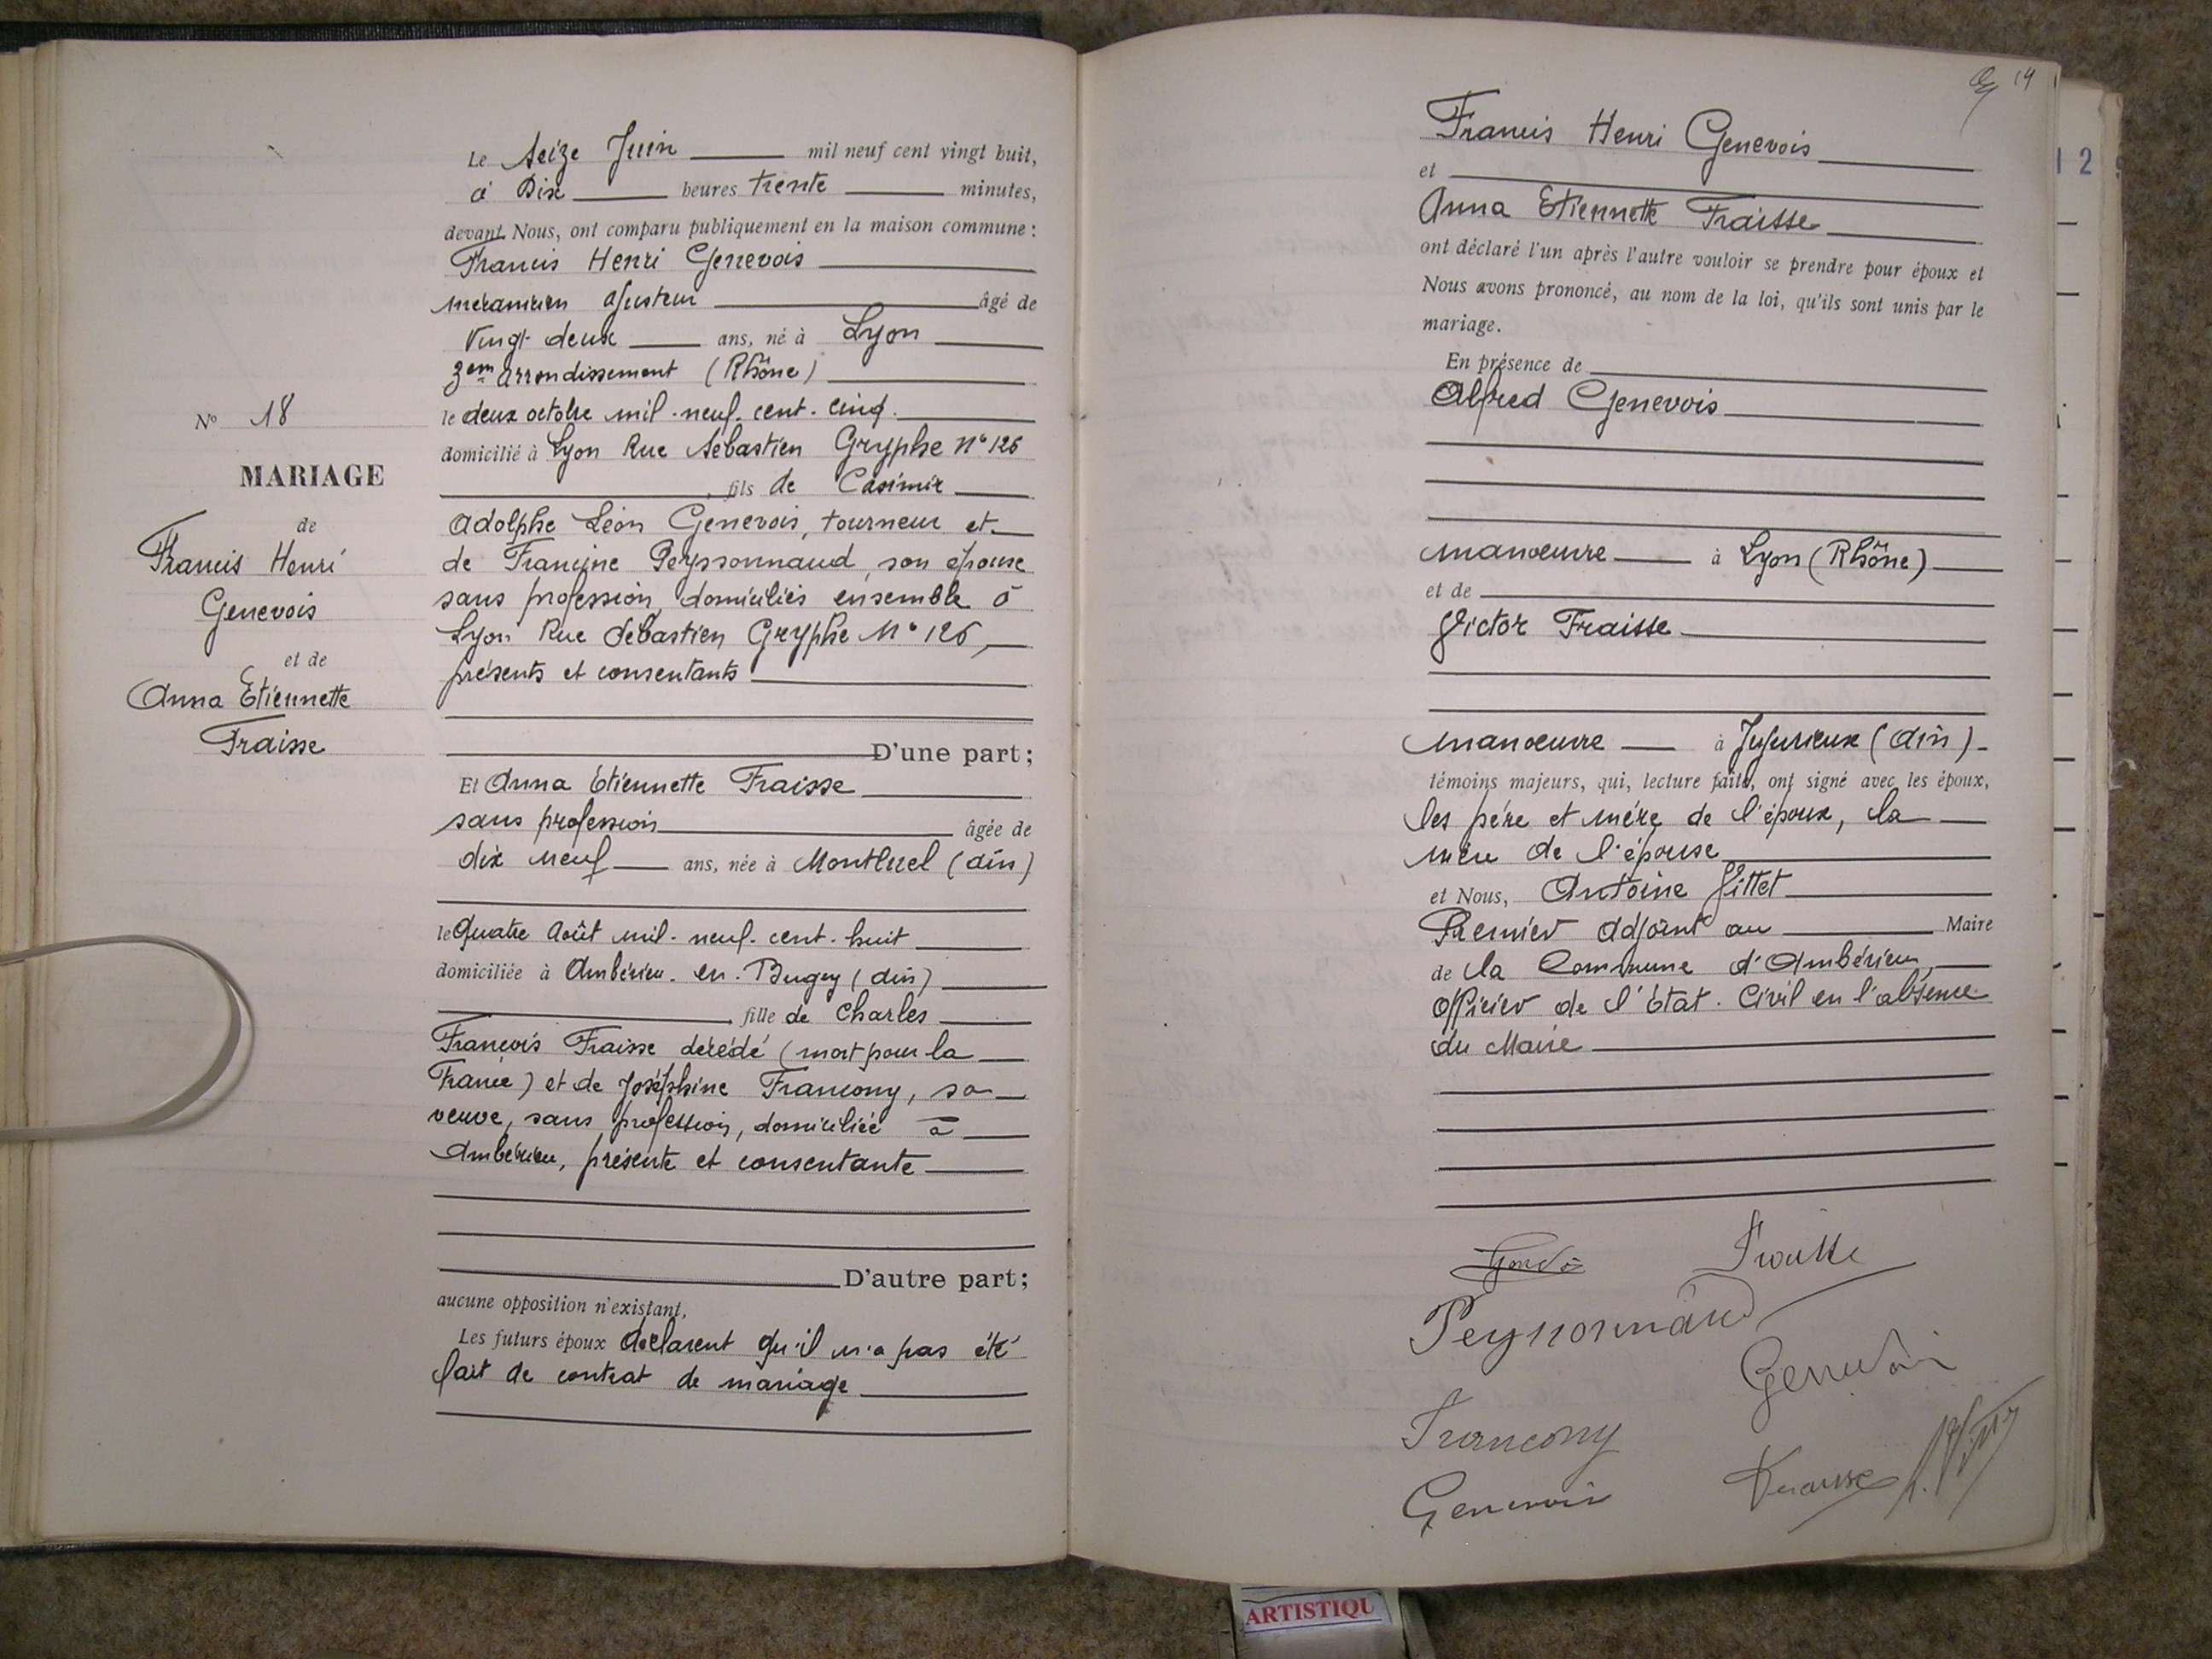 Nº 18
MARIAGE
de
Francis Henri
Genevois
et de
Anna Etiennette
Fraisse
Le Seize Juin mil neuf cent vingt huit,
à Dix heures trente minutes,
devant Nous, ont comparu publiquement en la maison commune :
Francis Henri Genevois
mécanicien ajusteur âgé de
vingt deux ans, né à Lyon
3em arrondissement (Rhône)
le deux octobre mil-neuf-cent-cinq
domicilié à Lyon Rue Sébastien Gryphe N° 126
, fils de Casimir
Adolphe Léon Genevois, tourneur et
de Francine Peyssonnaud, son épouse
sans profession, domiciliés ensemble à
Lyon Rue Sébastien Gryphe N° 126,
présents et consentants
D'une part ;
Et Anna Etiennette Fraisse
sans profession âgée de
dix neuf ans, née à Montluel (Ain)
le Quatre Août mil-neuf-cent-huit
domiciliée à Ambérieu-en-Bugey (Ain)
, fille de Charles
François Fraisse décédé (mort pour la
France) et de Joséphine Francony, sa
veuve, sans profession, domiciliée à
Ambérieu, présente et consentante
D'autre part ;
aucune opposition n'existant,
Les futurs époux déclarent qu'il n'a pas été
fait de contrat de mariage
14
Francis Henri Genevois
et
Anna Etiennette Fraisse
ont déclaré l'un après l'autre vouloir se prendre pour époux et
Nous avons prononcé, au nom de la loi, qu'ils sont unis par le
mariage.
En présence de
Alfred Genevois
manoeuvre à Lyon (Rhône)
et de
Victor Fraisse
manoeuvre à Jujurieux (Ain)
témoins majeurs, qui, lecture faite, ont signé avec les époux,
les père et mère de l'époux, la
mère de l'épouse
et Nous, Antoine Vittet
Premier adjoint au Maire
de la Commune d'Ambérieu,
officier de l'Etat-Civil en l'absence
du Maire
Fraisse
Peyssonnaud
Genevois
Francony
Genevois
Fraisse
12
ARTISTIQU